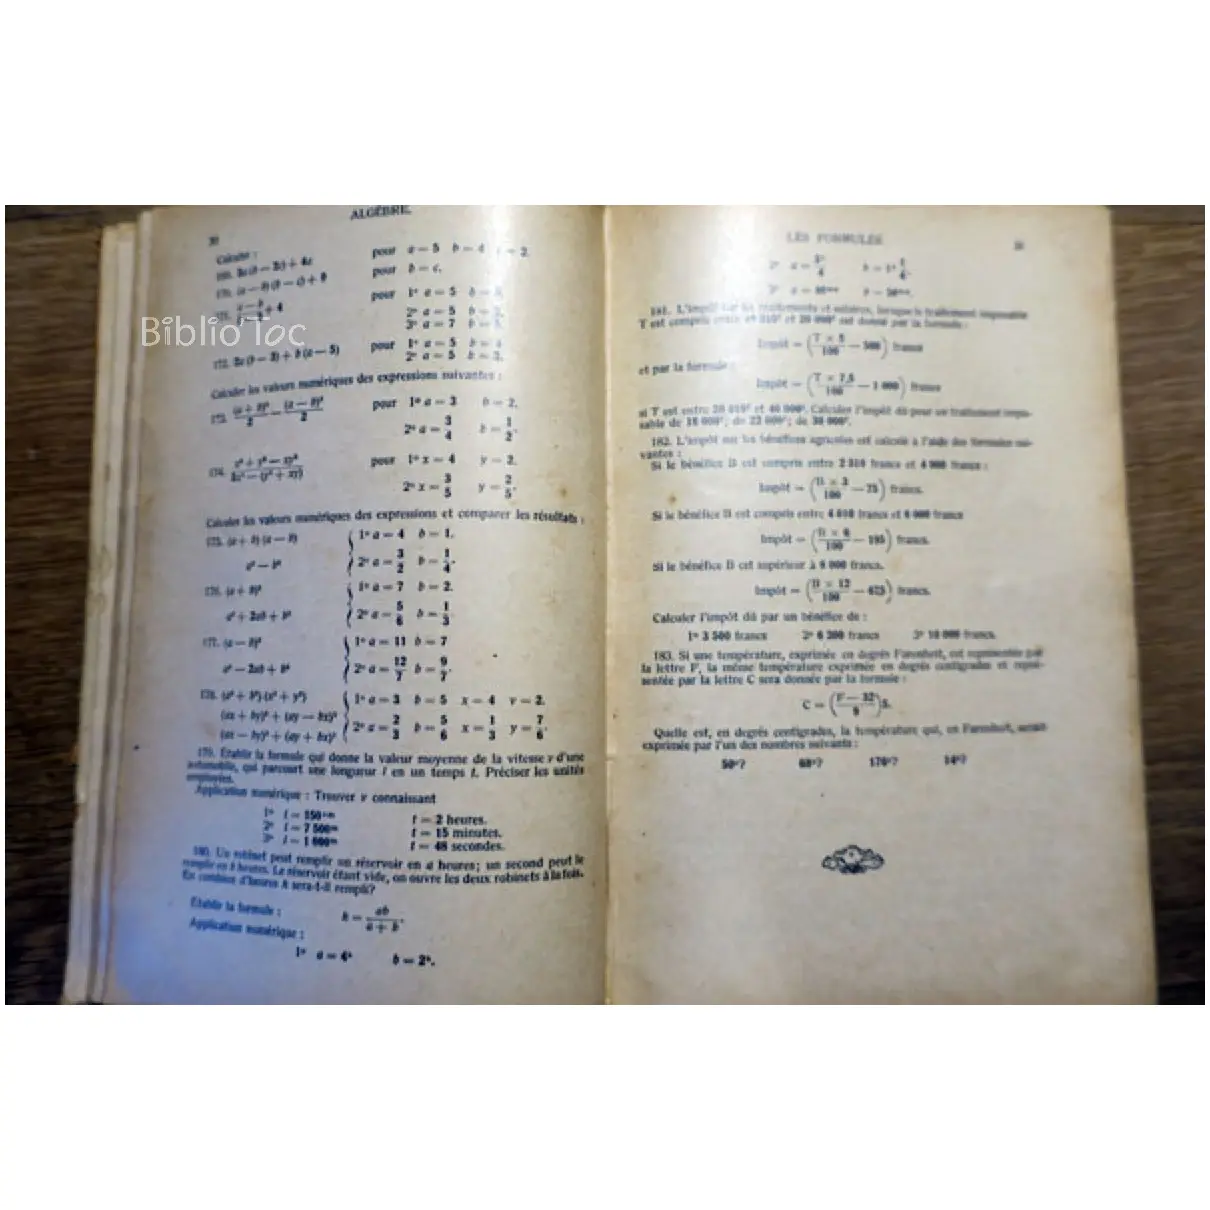 ALGÈBRE.
30
Calculer :
pour a = 5 b = 4 c = 2.
pour b = c.
pour 1° a = 5
2° a = 5
3° a = 7
172. 2a (b — 3) + b (a — 5) pour 1° a = 5
2° a = 5 b = 3.
Calculer les valeurs numériques des expressions suivantes :
173. (a + b)² / 2 — (a — b)² / 2 pour 1° a = 3 b = 2.
2° a = 3/4 b = 1/2.
174. pour 1° x = 4 y = 2.
2° x = 3/5 y = 2/5.
Calculer les valeurs numériques des expressions et comparer les résultats :
175. (a + b) (a — b) 1° a = 4 b = 1.
a² — b² 2° a = 3/2 b = 1/4.
176. (a + b)² 1° a = 7 b = 2.
a² + 2ab + b² 2° a = 5/6 b = 1/3
177. (a — b)² 1° a = 11 b = 7
a² — 2ab + b² 2° a = 12/7 b = 9/7.
178. (a² + b²) (x² + y²) 1° a = 3 b = 5 x = 4 y = 2.
(ax + by)² + (ay — bx)²
(ax — by)² + (ay + bx)² 2° a = 2/3 b = 5/6 x = 1/3 y = 7/6.
179. Établir la formule qui donne la valeur moyenne de la vitesse v d'une
automobile, qui parcourt une longueur l en un temps t. Préciser les unités
employées.
Application numérique : Trouver v connaissant
1° l = 150 km t = 2 heures.
2° l = 7 500 m t = 15 minutes.
3° l = 1 600 m t = 48 secondes.
180. Un robinet peut remplir un réservoir en a heures; un second peut le
remplir en b heures. Le réservoir étant vide, on ouvre les deux robinets à la fois.
En combien d'heures h sera-t-il rempli?
Établir la formule : h = ab / (a + b).
Application numérique :
1° a = 4ʰ b = 2ʰ.
LES FORMULES
181. L'impôt sur les traitements et salaires, lorsque le traitement imposable
T est compris entre et 20 000ᶠ est donné par la formule :
Impôt = (T × 5 / 100 — 500) francs
et par la formule :
Impôt = (T × 7,5 / 100 — 1 000) francs
si T est entre 20 010ᶠ et 40 000ᶠ. Calculer l'impôt dû pour un traitement impo-
sable de 18 000ᶠ; de 22 000ᶠ; de 30 000ᶠ.
182. L'impôt sur les bénéfices agricoles est calculé à l'aide des formules sui-
vantes :
Si le bénéfice B est compris entre 2 510 francs et 4 000 francs :
Impôt = (B × 3 / 100 — 75) francs.
Si le bénéfice B est compris entre 4 010 francs et 6 000 francs
Impôt = (B × 6 / 100 — 195) francs.
Si le bénéfice B est supérieur à 6 000 francs.
Impôt = (B × 12 / 100 — 675) francs.
Calculer l'impôt dû par un bénéfice de :
1° 3 500 francs 2° 6 200 francs 3° 10 000 francs.
183. Si une température, exprimée en degrés Farenheit, est représentée par
la lettre F, la même température exprimée en degrés centigrades et repré-
sentée par la lettre C sera donnée par la formule :
C = (F — 32 / 9) 5.
Quelle est, en degrés centigrades, la température qui, en Farenheit, serait
exprimée par l'un des nombres suivants :
50°? 68°? 176°? 14°?
Biblio loc